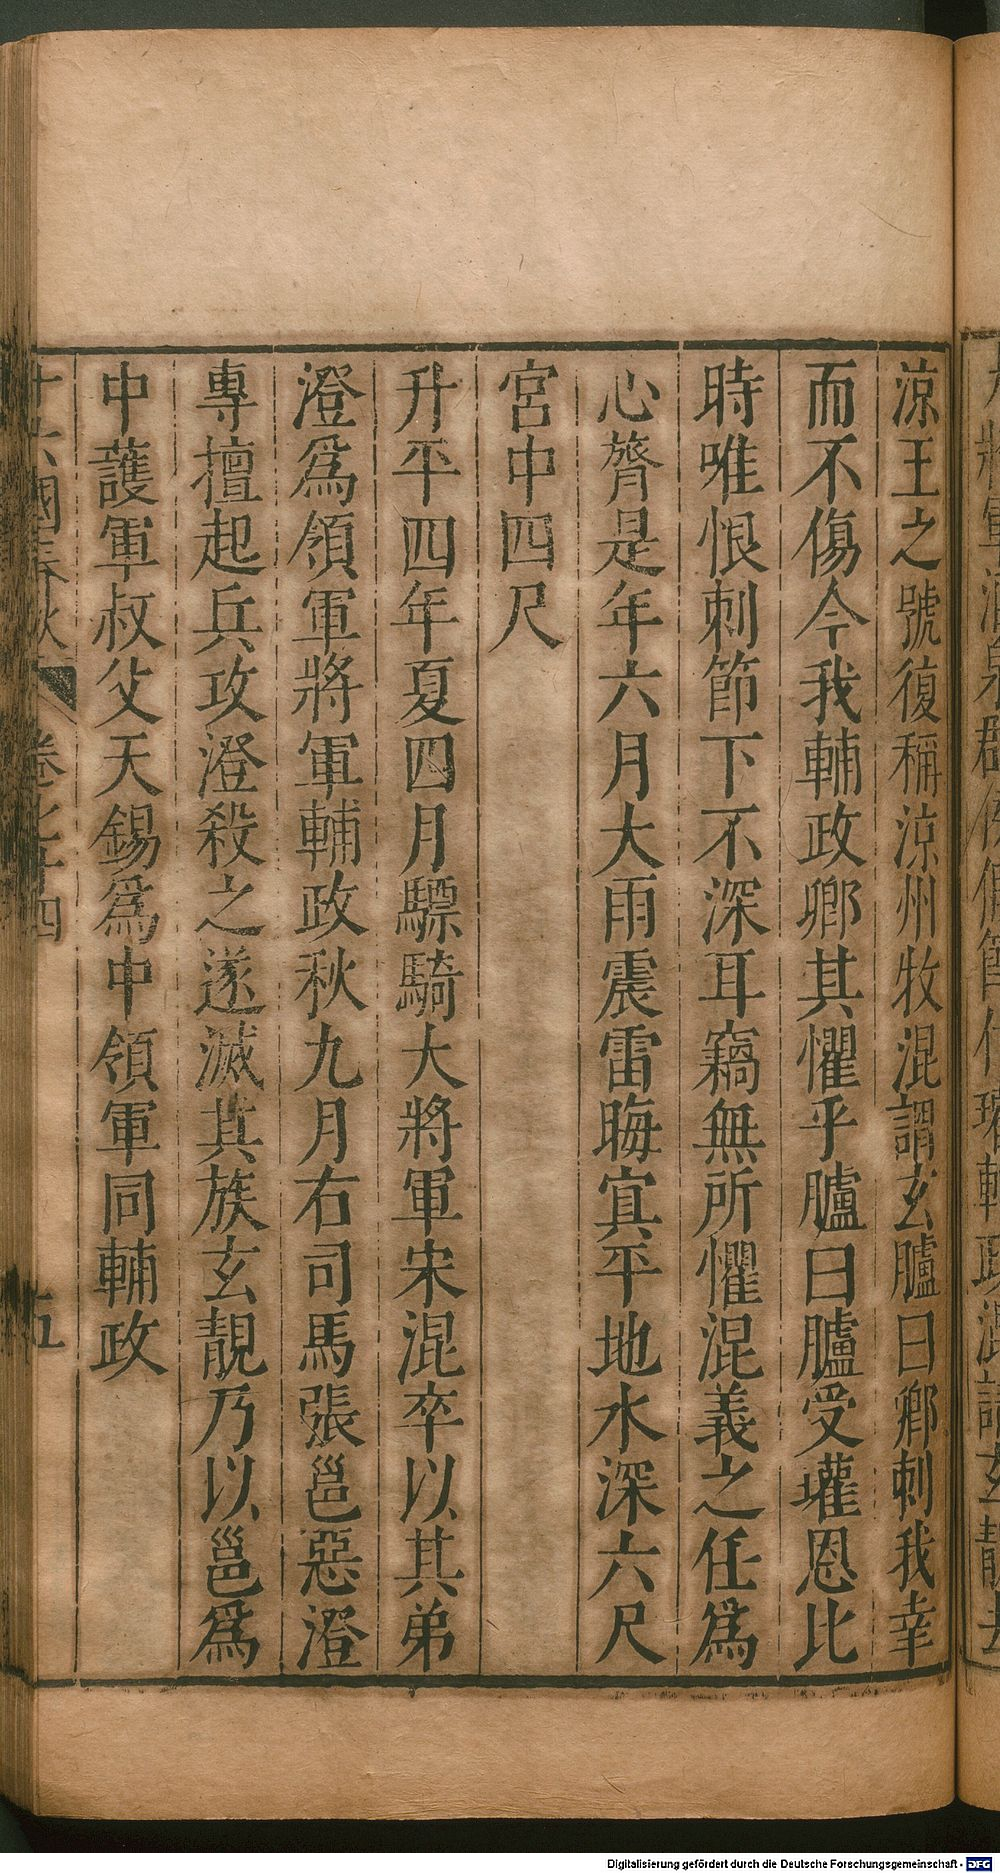 涼王之號復稱涼州牧混謂玄臚曰卿刺我幸
而不傷今我輔政卿其懼乎臚曰臚受瓘恩比
時唯恨刺節下不深耳竊無所懼混義之任爲
心膂是年六月大雨震雷晦冥平地水深六尺
宮中四尺
升平四年夏四月驃騎大將軍宋混卒以其弟
澄爲領軍將軍輔政秋九月右司馬張邕惡澄
專擅起兵攻澄殺之遂滅其族玄靚乃以邕爲
中護軍叔父天錫爲中領軍同輔政
十六國春秋 卷七十四 五
Digitalisierung gefördert durch die Deutsche Forschungsgemeinschaft - DFG